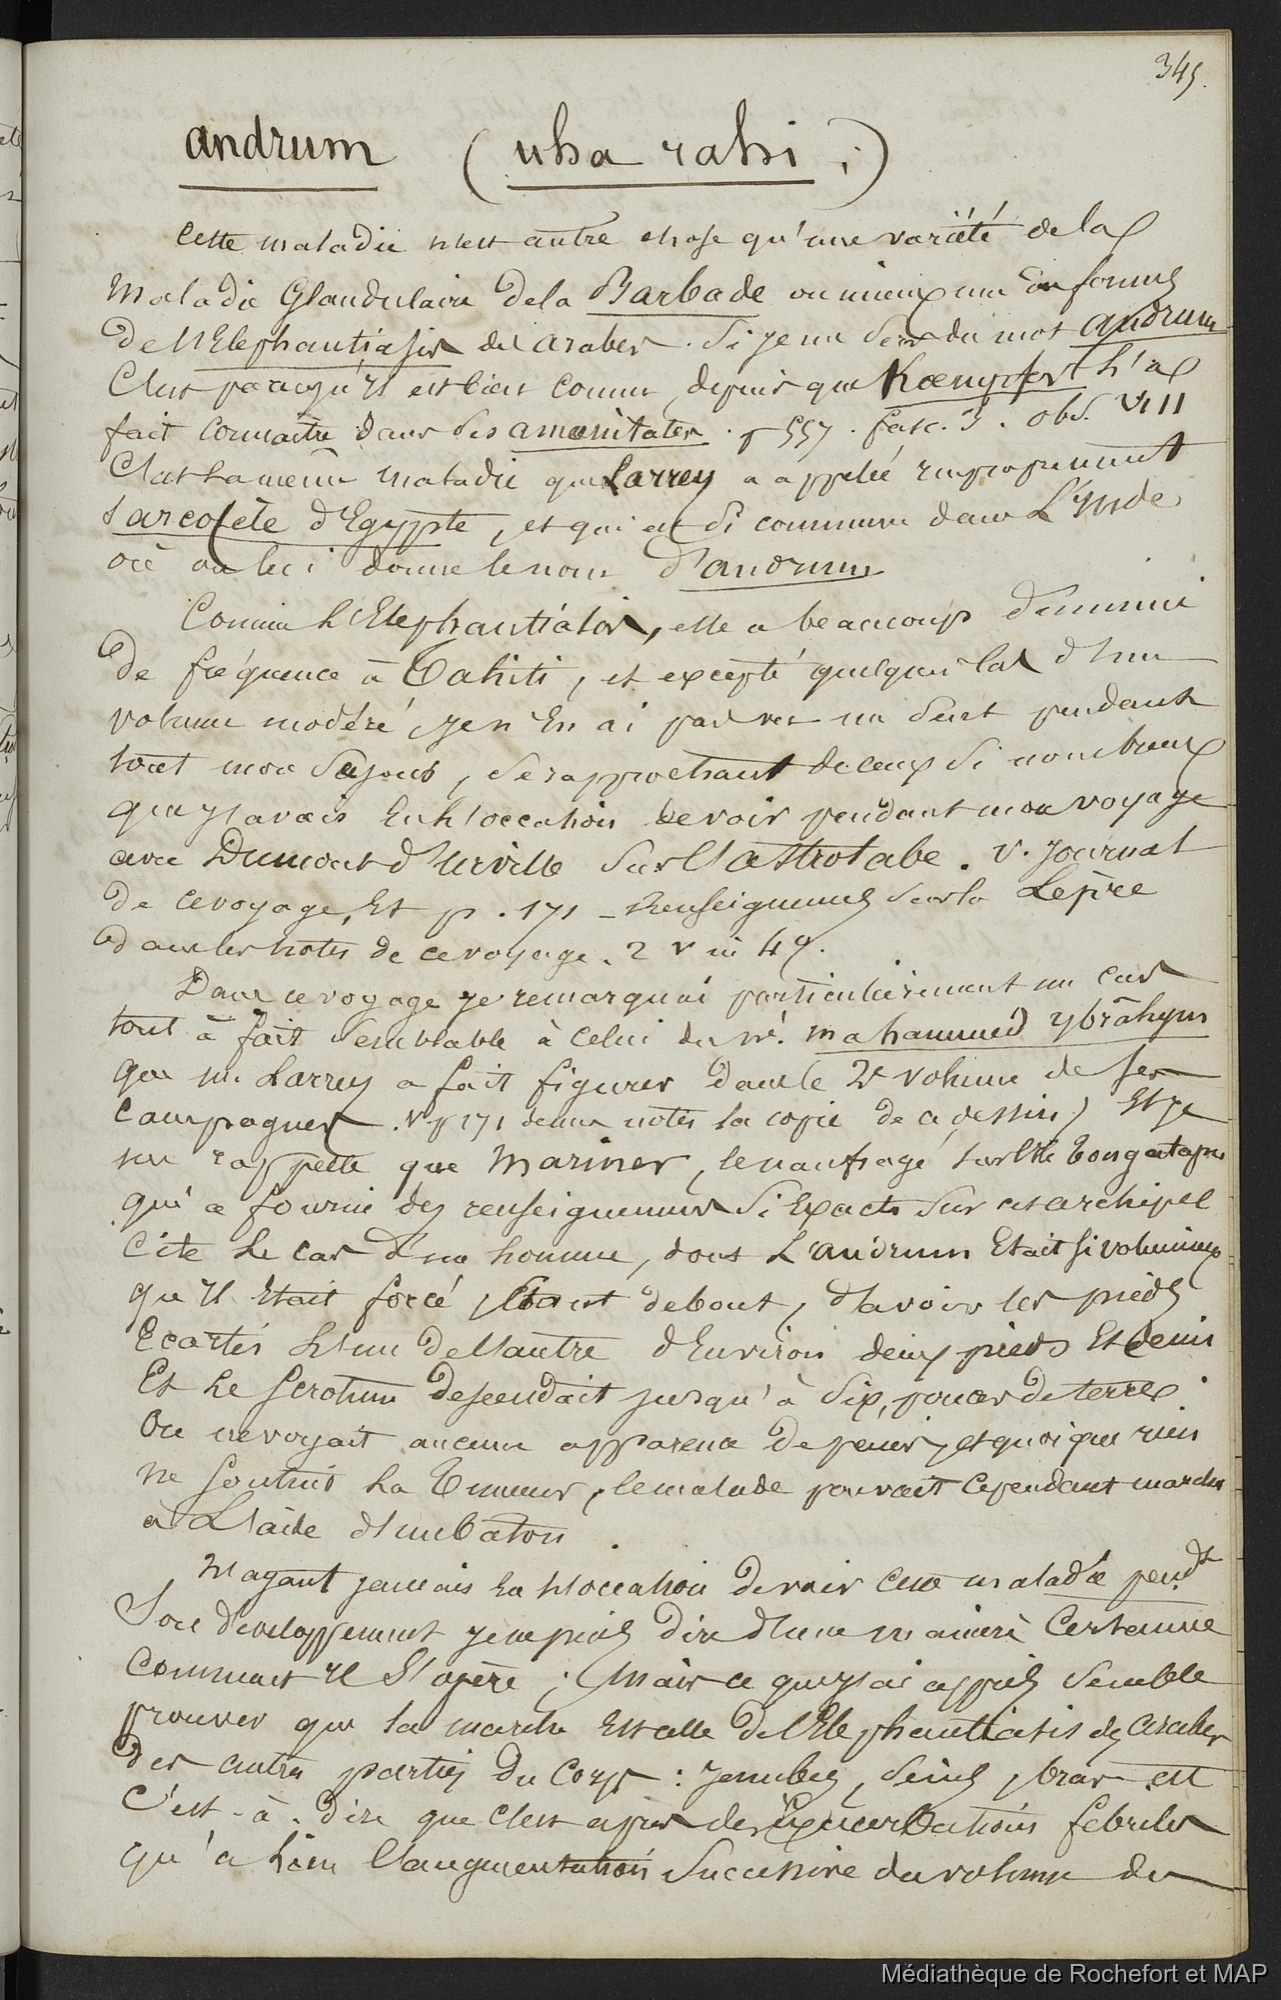 345.
andrum ( uha rahi ; )
Cette maladie n'est autre chose qu'une variété de la
Maladie Glandulaire de la Barbade ou mieux une des formes
De l'Elephantiasis des arabes. Si je me sers du mot andrum
C'est parcequ'il est bien connu, depuis que Kœmpfer l'a
fait connaitre dans ses amœnitates. p 557. fasc. 3. obs. VIII
C'est la même maladie que Larrey a appelé improprement
sarcocèle d'Egypte, et qui est si commune dans L'Ynde
où on lui donne le nom d'andrum
Comme l'Elephantiasis, elle a beaucoup diminué
De fréquence à Tahiti, et excepté quelques cas d'un
volume modéré, je n'en ai pas vu un seul pendant
tout mon séjour, se rapprochant de ceux si nombreux
que j'avais eu l'occasion de voir pendant mon voyage
avec Dumont d'Urville sur l'astrolabe. V. journal
de ce voyage, Et p. 171 - Renseignemens sur la Lèpre
dans les notes de ce voyage. 2 v in 4°.
Dans ce voyage je remarquai particulièrement un cas
tout à fait semblable à celui du né. mahammed ybrâhym
que M. Larrey a fait figurer dans le 2e volume de ses
Campagnes. V p 171 de mes notes la copie de ce dessin) Et je
me rappelle que Mariner, le naufragé sur l'île Tongatapu
qui a fourni des renseignemens si Exacts sur cet archipel
Cite le cas d'un homme, dont L'andrum Etait si volumineux
qu'il Etait forcé, Etant debout, d'avoir les pieds
Ecartés l'un de l'autre d'Environ deux pieds Et demi
Et le scrotum descendait jusqu'à six pouces de terre.
On ne voyait aucune apparence de penis, et quoique rien
ne soutint la Tumeur, le malade pouvait cependant marcher
à L'aide d'un bâton.
N'ayant jamais eu l'occasion de voir cette maladie pend.t
Son développement je ne puis dire d'une manière Certaine
Comment il s'opère ; Mais ce que j'ai appris semble
prouver que sa marche Est celle de l'Elephantiasis des arabes
Des autres parties du Corps : jambes, seins, bras ett
C'est-à-dire que c'est après des Exacerbations febriles
qu'a lieu l'augmentation successive du volume du
Médiathèque de Rochefort et MAP